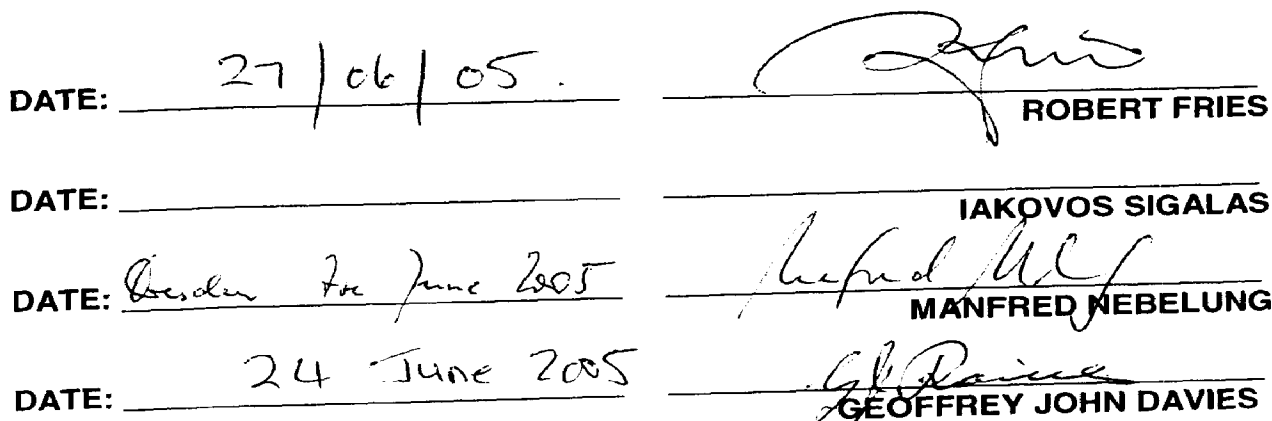 DATE: 27/06/05.
ROBERT FRIES
DATE:
IAKOVOS SIGALAS
DATE: Dresden June 2005
MANFRED NEBELUNG
DATE: 24 June 2005
GEOFFREY JOHN DAVIES